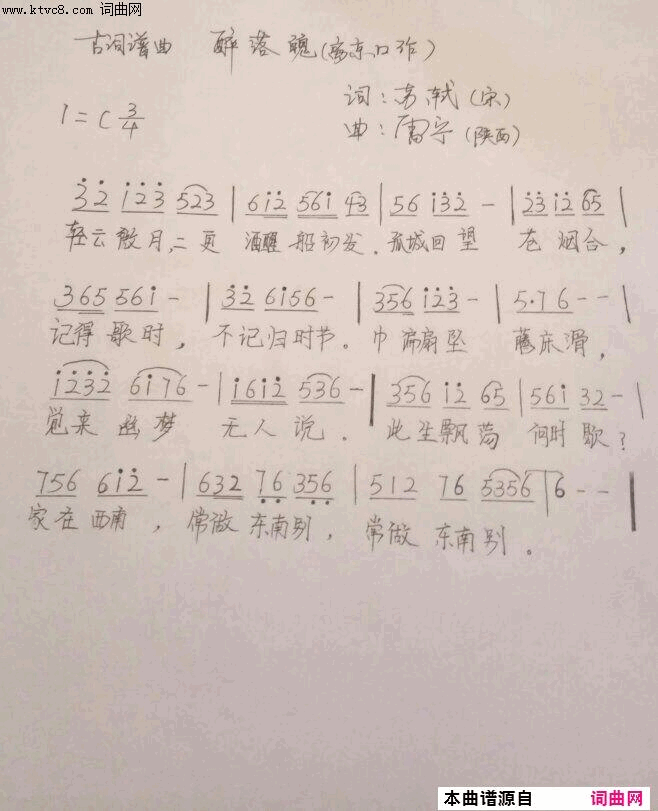 www.ktvc8.com 词曲网
古词谱曲 醉落魄(离京口作)
词:苏轼(宋)
1=C 3/4
曲:雷宁(陕西)
3̇2̇ 1̇2̇3̇ 523 | 61̇2̇ 561̇ 43 | 56 1̇3̇2̇ - | 2̇3̇ 1̇2̇ 65 |
轻云散月,二更 酒醒船初发.孤城回望 苍烟合,
365 561̇ - | 3̇2̇ 61̇56- | 356 1̇2̇3̇ - | 5·76 - - |
记得歌时,不记归时节。巾偏扇坠 藤床滑,
1̇2̇3̇2̇ 61̇76 - | 1̇61̇2̇ 536 - | 356 1̇2̇ 65 | 561̇ 32- |
觉来幽梦 无人说.此生飘荡 何时歇?
756 61̇2̇ - | 632 7̣6̣ 3̣5̣6̣ | 512 76 5356 | 6 - - |
家在西南,常做东南别,常做东南别。
本曲谱源自 词曲网